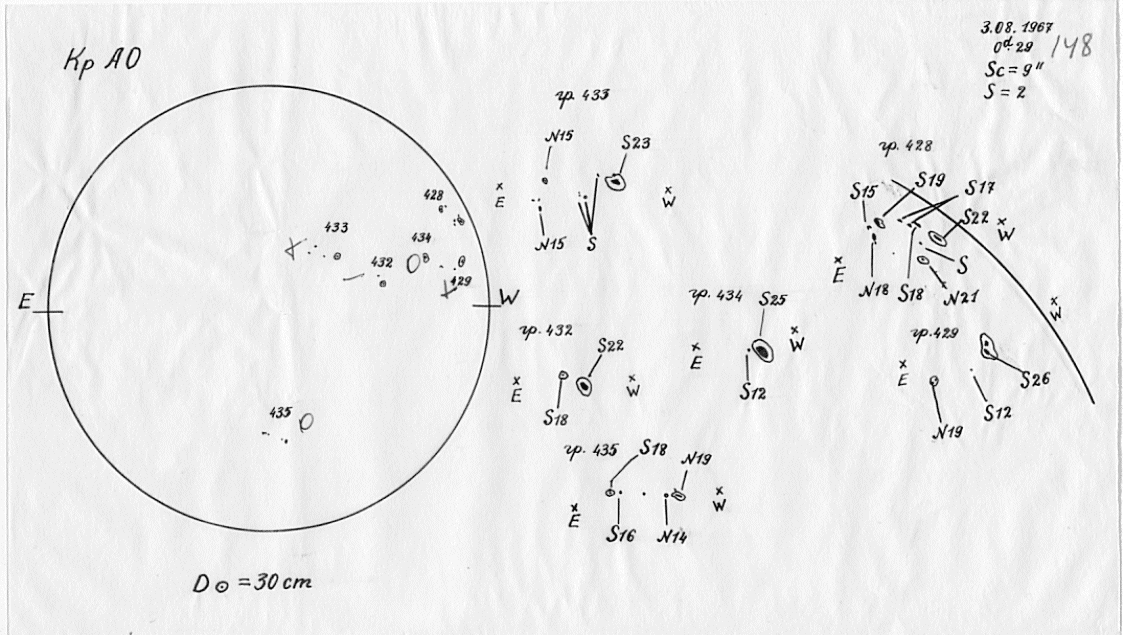 Кр АО
3.08.1967
0ᵈ.29
148
Sc = 9"
S = 2
428
433
434
432
429
E
W
435
D⊙ = 30 cm
гр. 433
N15
S23
x
E
x
W
N15
S
гр. 428
S15
S19
S17
S22
x
W
x
E
S
N18
S18
N21
гр. 434
S25
x
E
x
W
S12
гр. 432
S22
x
E
x
W
S18
гр. 429
x
W
x
E
S26
S12
N19
гр. 435
S18
N19
x
E
x
W
S16
N14